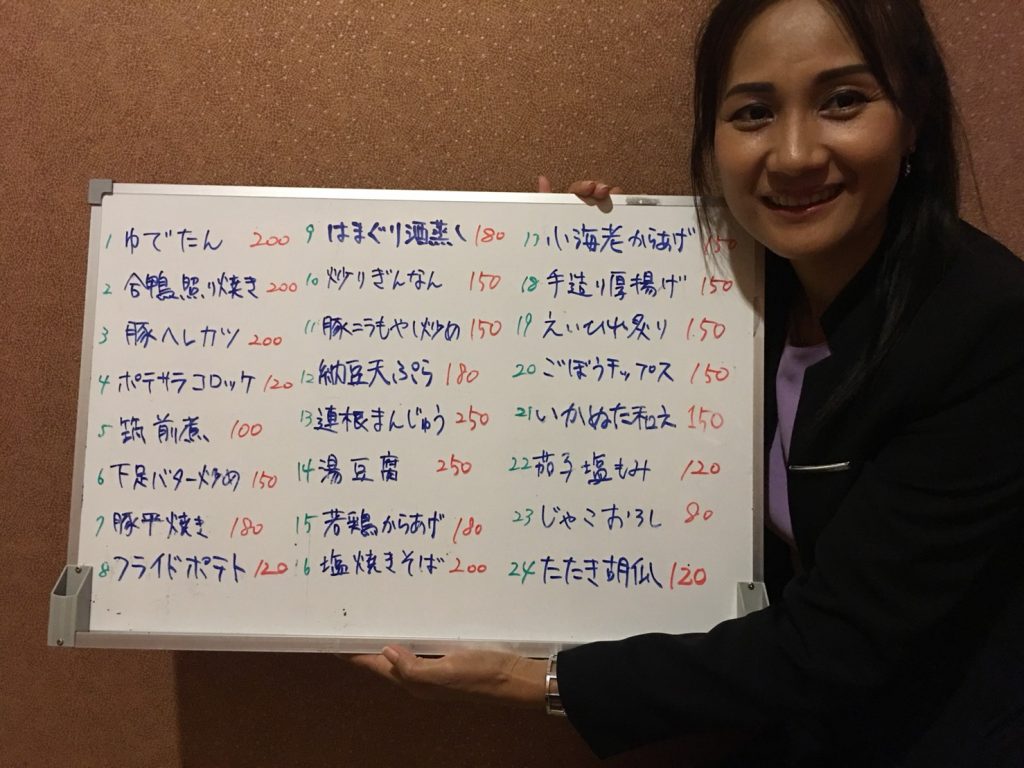 1 ゆでたん 200
2 合鴨照り焼き 200
3 豚ヘレカツ 200
4 ポテサラコロッケ 120
5 筑前煮 100
6 下足バター炒め 150
7 豚平焼き 180
8 フライドポテト 120
9 はまぐり酒蒸し 180
10 炒りぎんなん 150
11 豚ニラもやし炒め 150
12 納豆天ぷら 180
13 連根まんじゅう 250
14 湯豆腐 250
15 若鶏からあげ 180
16 塩焼きそば 200
17 小海老からあげ 150
18 手造り厚揚げ 150
19 えいひれ炙り 150
20 ごぼうチップス 150
21 いかぬた和え 150
22 茄子塩もみ 120
23 じゃこおろし 80
24 たたき胡瓜 120